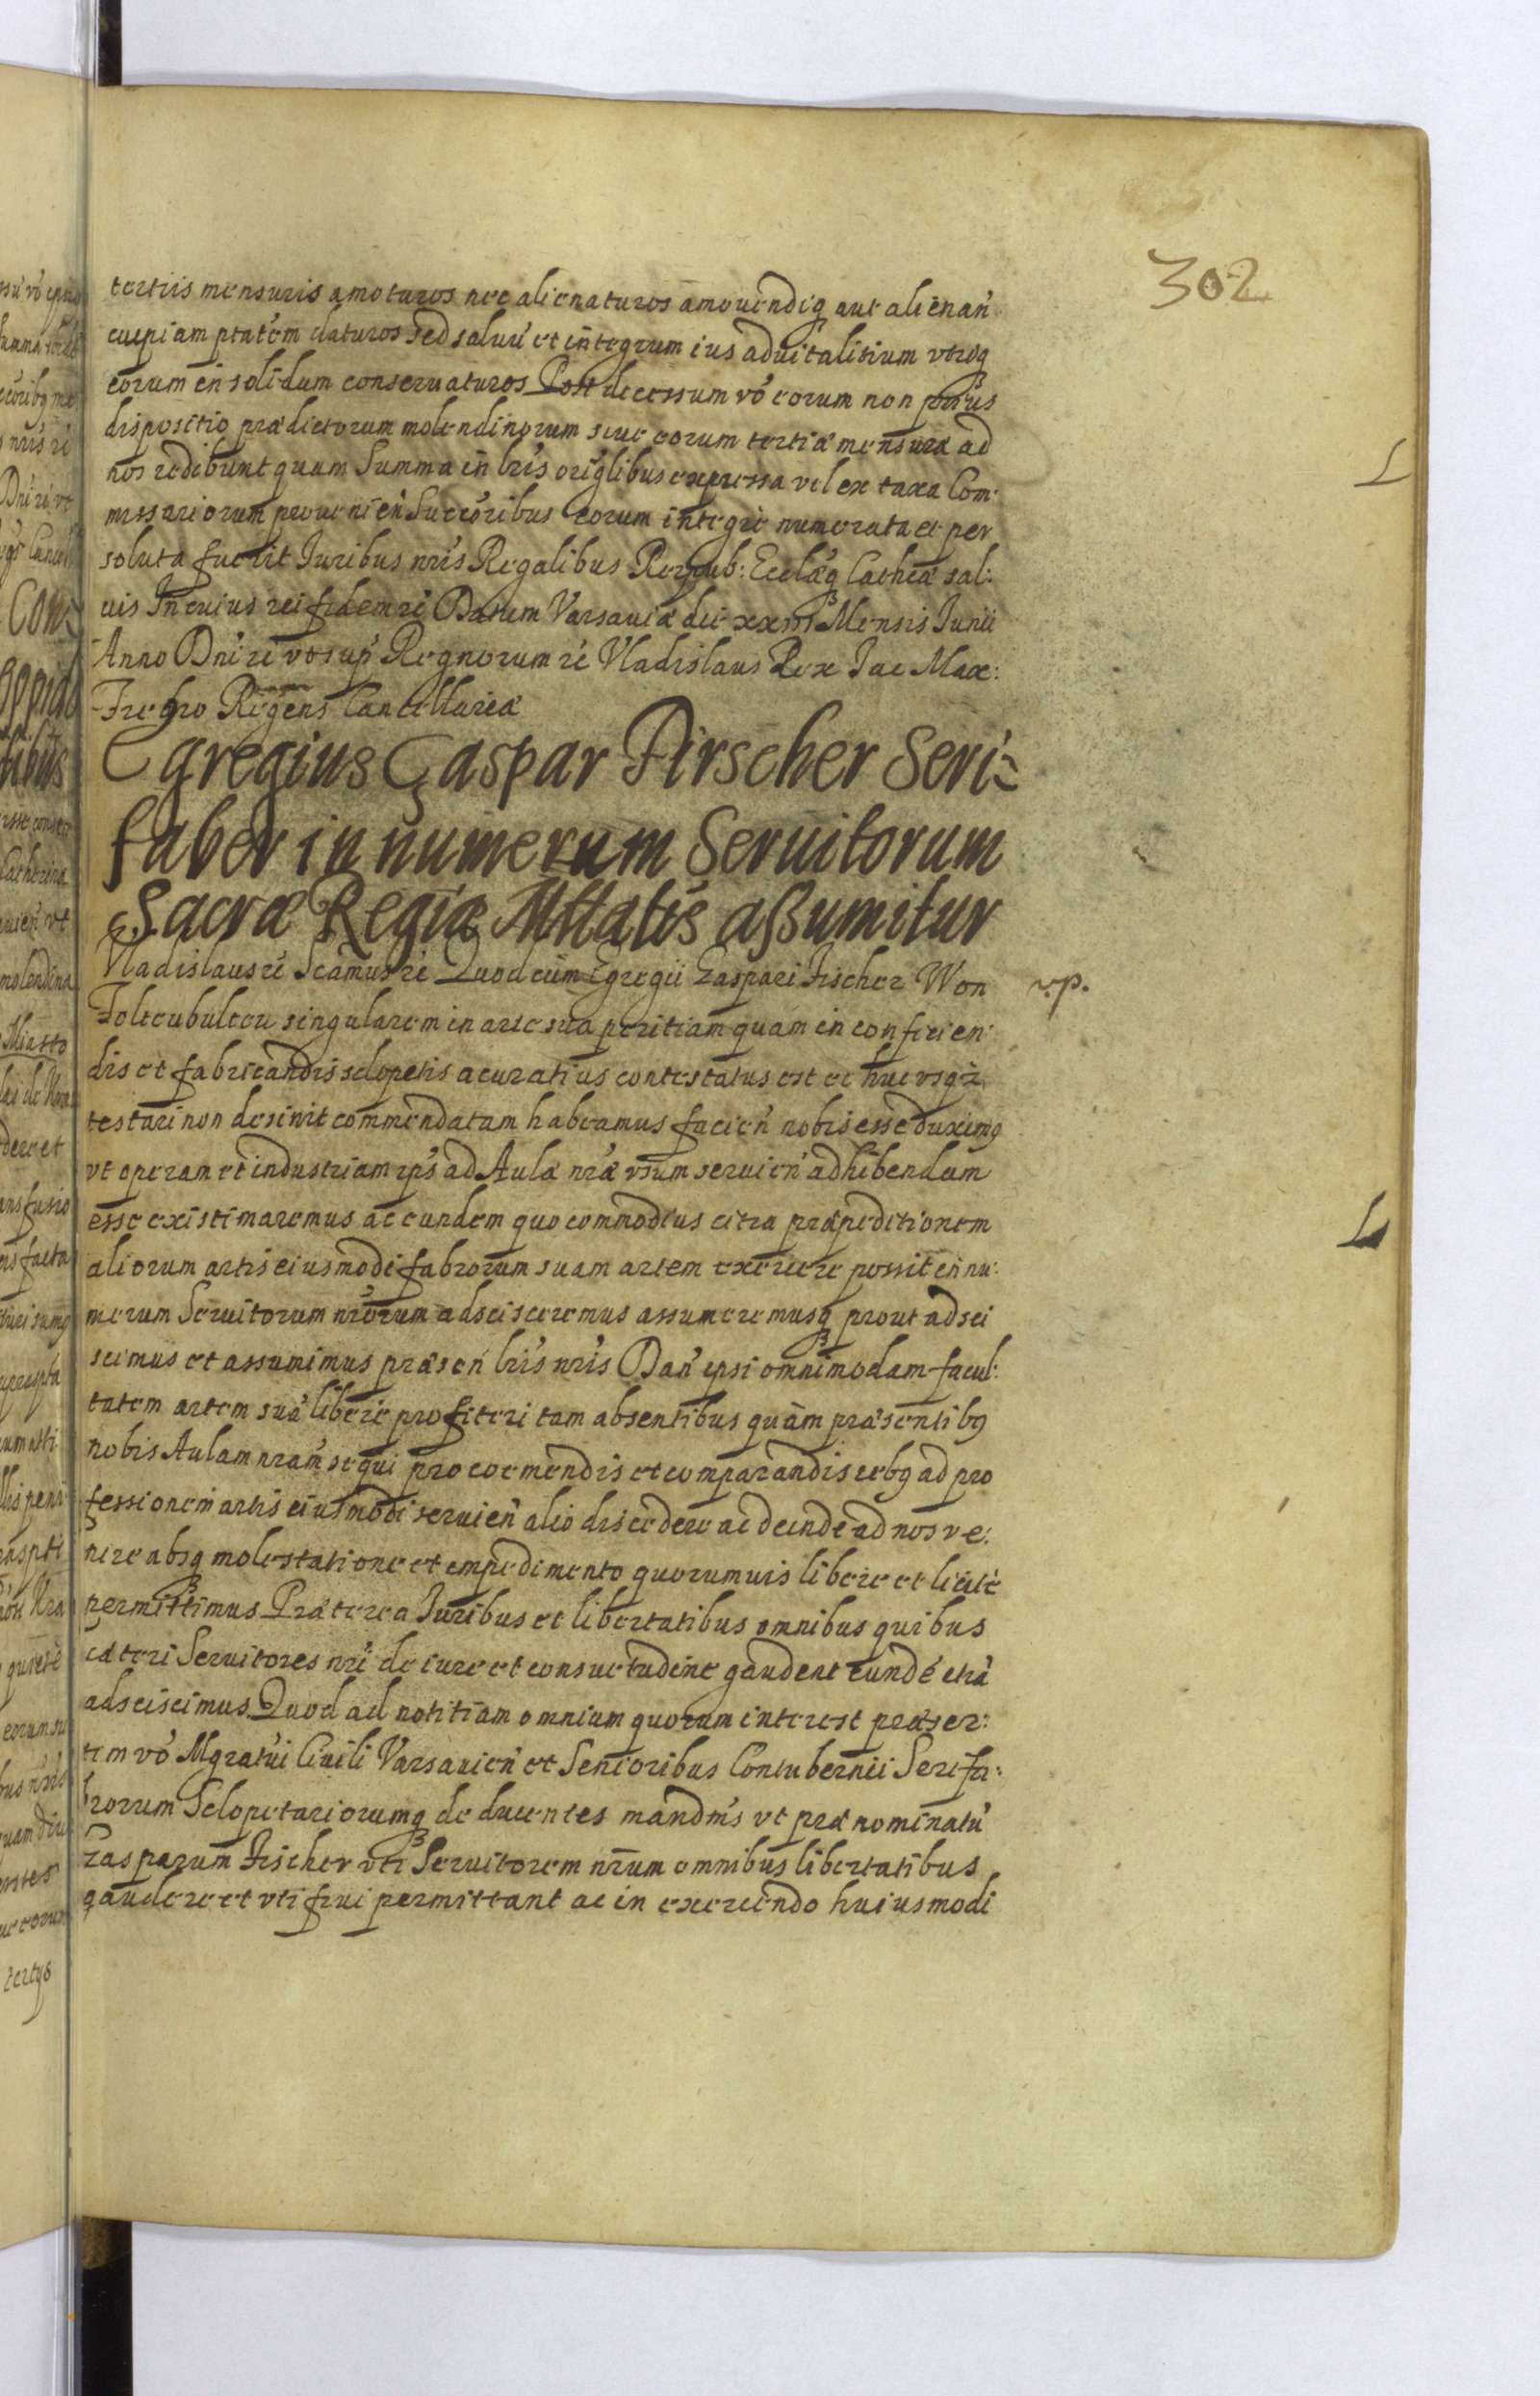 302
tertiis mensuris amoturos nec alienaturos amouendiq aut alienan̄
cuipiam ptatem daturos sed saluu et integrum ius aduitalitium vtriq
eorum in solidum conseruaturos Post decessum vo eorum non prius
dispositio prædictorum molendinorum siue eorum tertiæ mensuræ ad
nos redibunt quam Summa in lris origlibus expressa vel ex taxa Com:
missariorum prouenien Succoribus eorum integre numerata et per
soluta fuerit Iuribus nris Regalibus Reipub: Eclæq Cathcæ sal:
uis In cuius rei fidem ꝛc Datum Varsauiæ die xxiii Mensis Iunii
Anno Dni ꝛc vt sup Regnorum ꝛc Vladislaus Rex Iac Max:
Fredro Regens Cancellariæ
Egregius Gaspar Firscher Seri=
faber in numerum Seruitorum
Sacræ Regiæ Mttatis aßumitur
Vladislaus ꝛc Scamus ꝛc Quod cum Egregii Gaspari Fischer Won
v.p.
singularem in arte sua peritiam quam in conficien:
dis et fabricandis sclopetis acuratius contestatus est et huc vsq
testari non desinit commendatam habeamus facien nobis esse duximq
vt operam et industriam ips ad Aulæ nræ vsum seruien adhibendam
esse existimaremus ac eundem quo commodius citra præpeditionem
aliorum artis eiusmodi fabrorum suam artem exercere possit in nu:
merum Seruitorum nrorum adscisceremus assumeremusq prout adsci
scimus et assumimus præsen lris nris Dan ipsi omnimodam facul:
tatem artem sua libere profiteri tam absentibus quam præsentibq
nobis Aulam nram sequi pro coemendis et comparandis rebq ad pro
fessionem artis eiusmodi seruien alio discedere ac deinde ad nos ve:
nire absq molestatione et impedimento quorumuis libere et licite
permittimus Præterea Iuribus et libertatibus omnibus quibus
cæteri Seruitores nri de iure et consuetudine gaudent eunde etia
adsciscimus Quod ad notitiam omnium quorum interest præser:
tim vo Mgratui Ciuili Varsauien et Senioribus Contubernii Serifa:
brorum Sclopetariorumq deducentes mandms vt prænominatu
Gasparum Fischer vti Seruitorem nrum omnibus libertatibus
gaudere et vti frui permittant ac in exercendo huiusmodi